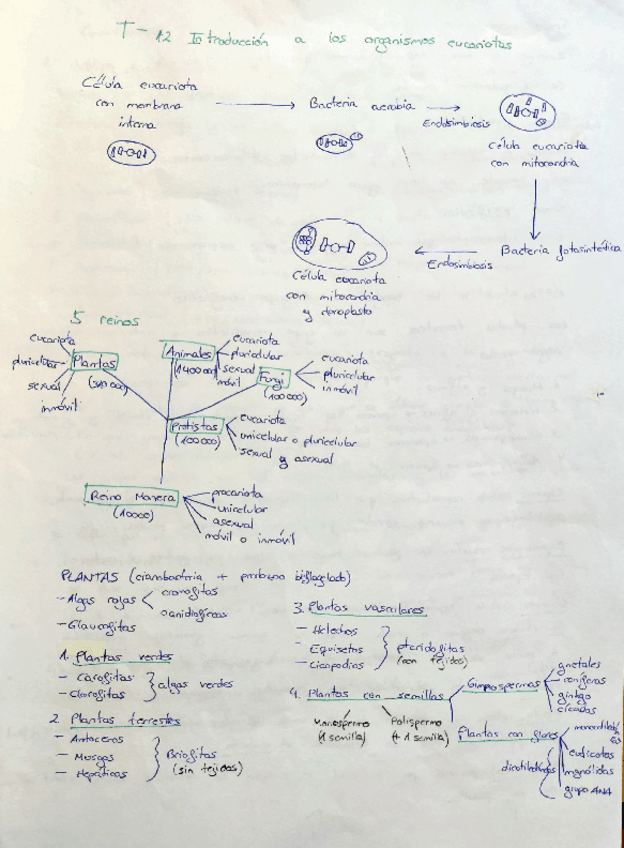 T-12 Introducción a los organismos eucariotas
Célula eucariota
con membrana
interna
Bacteria aerobia
Endosimbiosis
Célula eucariota
con mitocondria
Bacteria fotosintética
Endosimbiosis
Célula eucariota
con mitocondria
y cloroplasto
5 reinos
eucariota
pluricelular
sexual
inmóvil
Plantas
Animales
(1400000)
eucariota
pluricelular
sexual
móvil
Fungi
(100000)
eucariota
pluricelular
inmóvil
Protistas
(100000)
eucariota
unicelular o pluricelular
sexual y asexual
Reino Monera
(10000)
procariota
unicelular
asexual
móvil o inmóvil
PLANTAS (cianobacteria + biflagelado)
- Algas rojas
- Glaucofitas
1. Plantas verdes
- Carofitas
- Clorofitas
algas verdes
2. Plantas terrestes
- Antoceros
- Musgos
- Hepáticas
Briofitas
(sin tejidos)
3. Plantas vasculares
- Helechos
- Equisetos
- Licopodios
pteridofitas
(con tejidos)
4. Plantas con semillas
Monospermo
(1 semilla)
Polispermo
(+ 1 semilla)
Gimnospermas
gnetales
coníferas
ginkgo
cícadas
Plantas con flores
eudicotas
magnólidas
grupo ANA